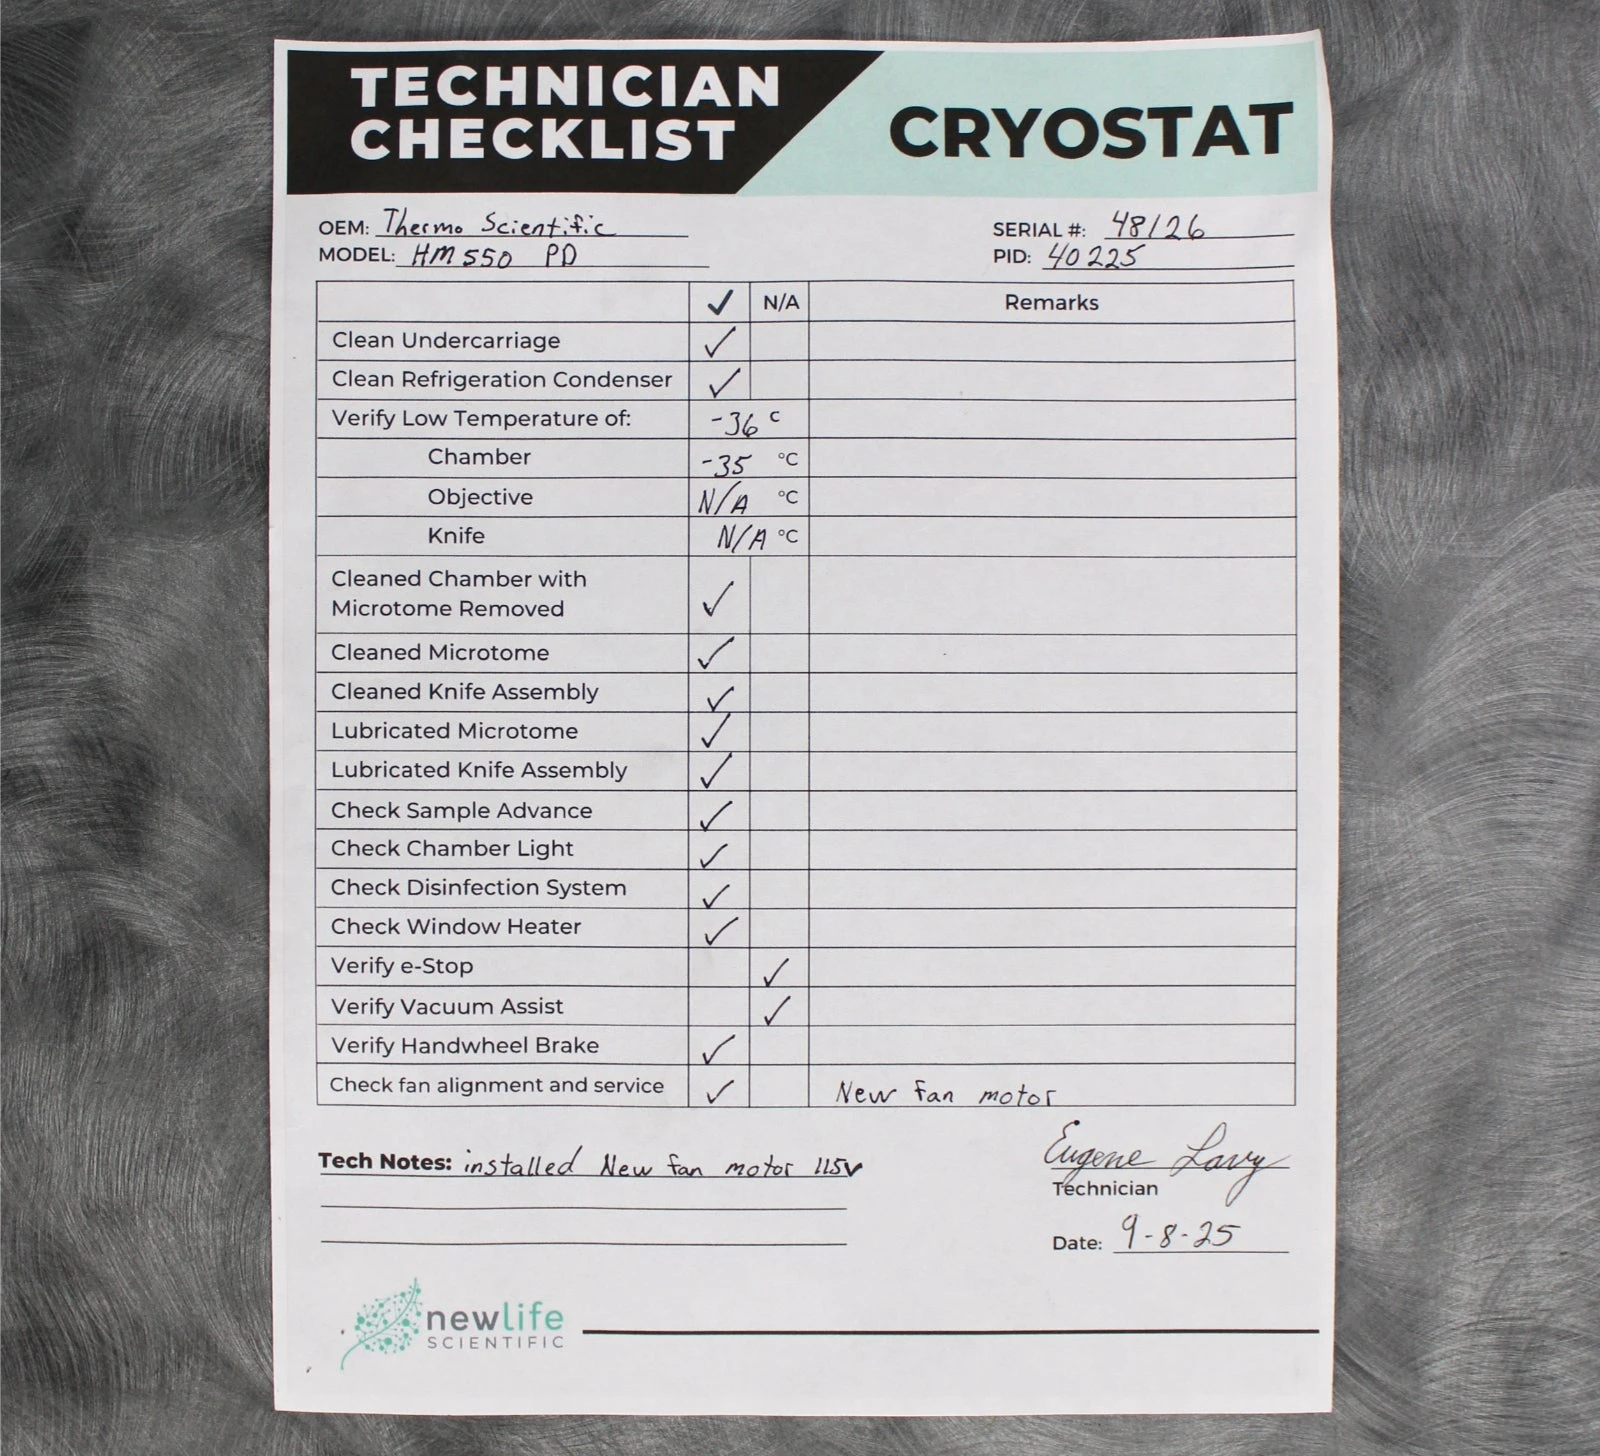 TECHNICIAN
CHECKLIST
CRYOSTAT
OEM: Thermo Scientific
MODEL: HM 550 PD
SERIAL #: 48126
PID: 40225
✓ N/A Remarks
Clean Undercarriage ✓
Clean Refrigeration Condenser ✓
Verify Low Temperature of: -36 c
Chamber -35 °C
Objective N/A °C
Knife N/A °C
Cleaned Chamber with
Microtome Removed ✓
Cleaned Microtome ✓
Cleaned Knife Assembly ✓
Lubricated Microtome ✓
Lubricated Knife Assembly ✓
Check Sample Advance ✓
Check Chamber Light ✓
Check Disinfection System ✓
Check Window Heater ✓
Verify e-Stop ✓
Verify Vacuum Assist ✓
Verify Handwheel Brake ✓
Check fan alignment and service ✓ New fan motor
Tech Notes: installed New fan motor 115v
Eugene Lavy
Technician
Date: 9-8-25
newlife
SCIENTIFIC